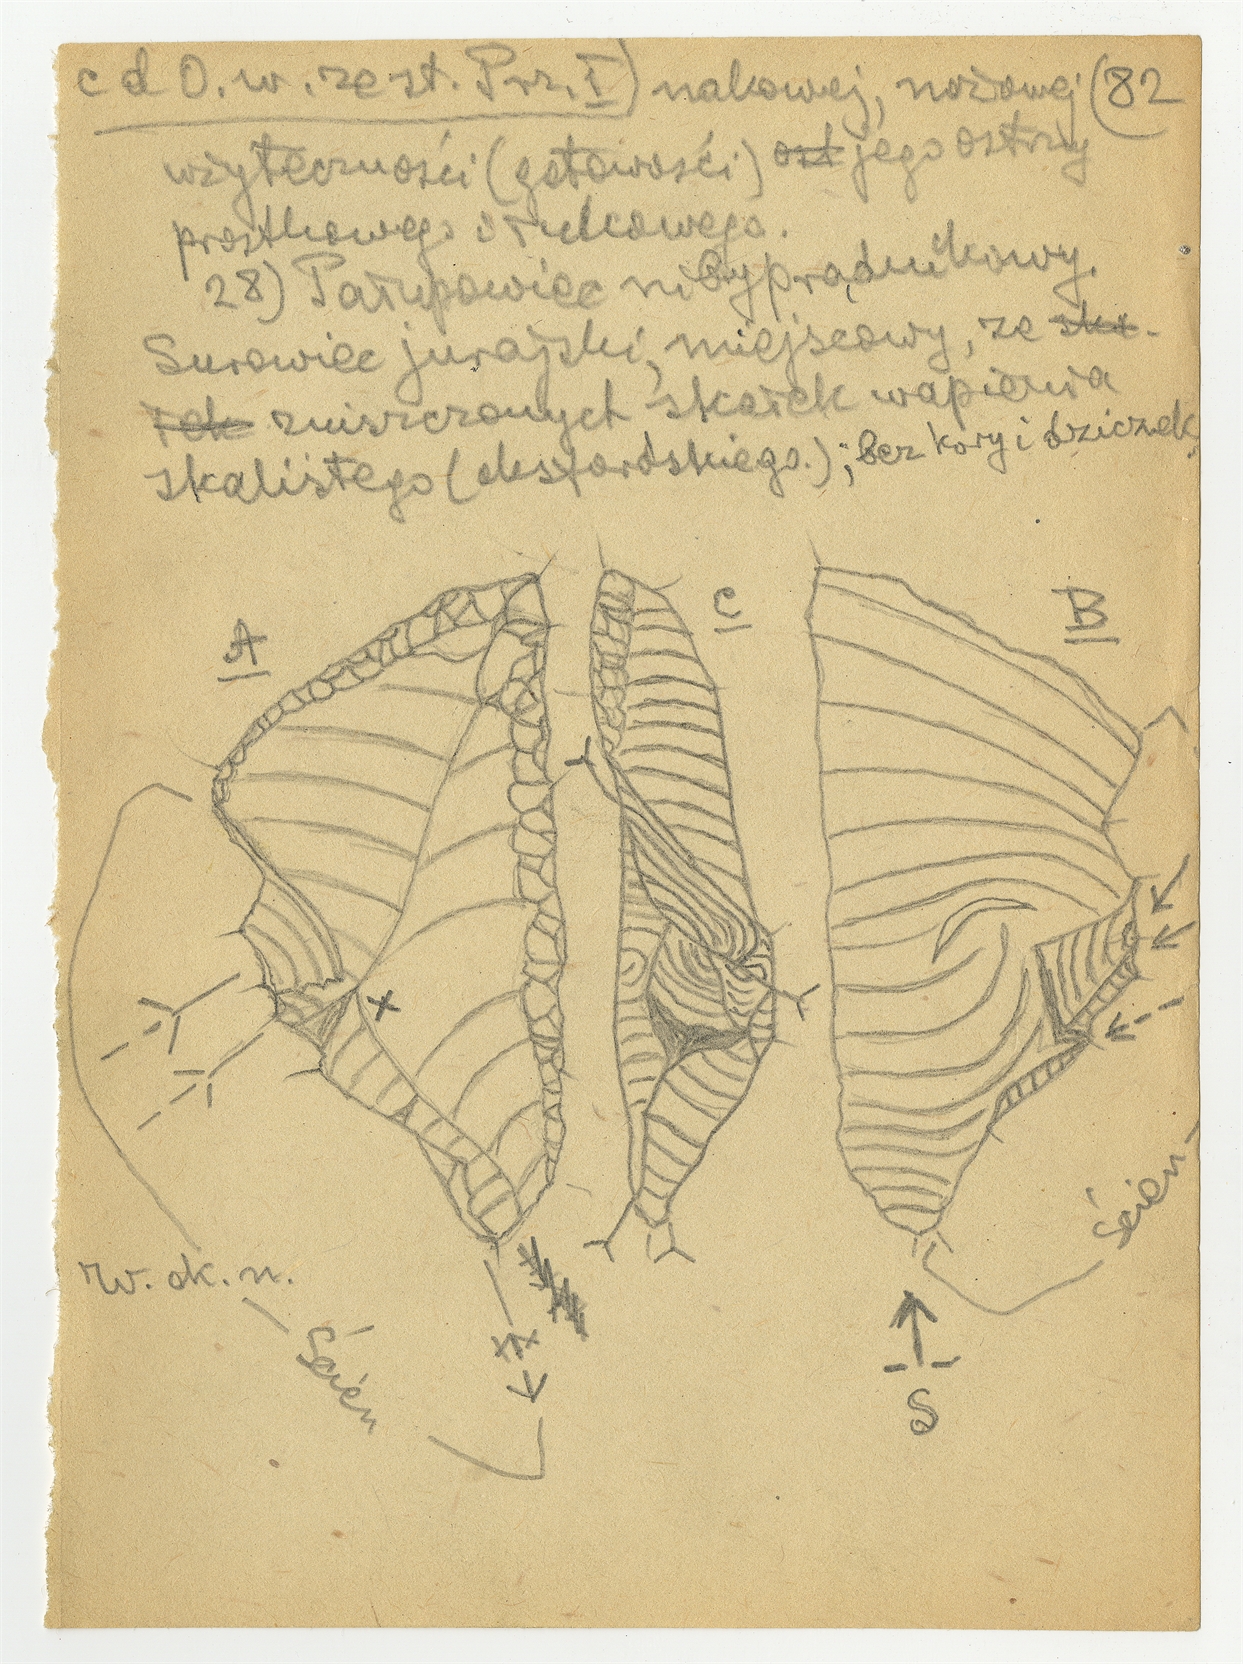 c d O. w. zest. Prz. I) nakowej, nożowej (82
użyteczności (gotowości) ost jego ostrzy
prostkowego i łukowego.
28) Patupowiec nibyprądnikowy.
Surowiec jurajski, miejscowy, ze ska-
łek zniszczonych skałek wapienia
skalistego (oksfordskiego.); bez kory i
A
C
B
x
w. ok. n.
Ścien
Ścien
S